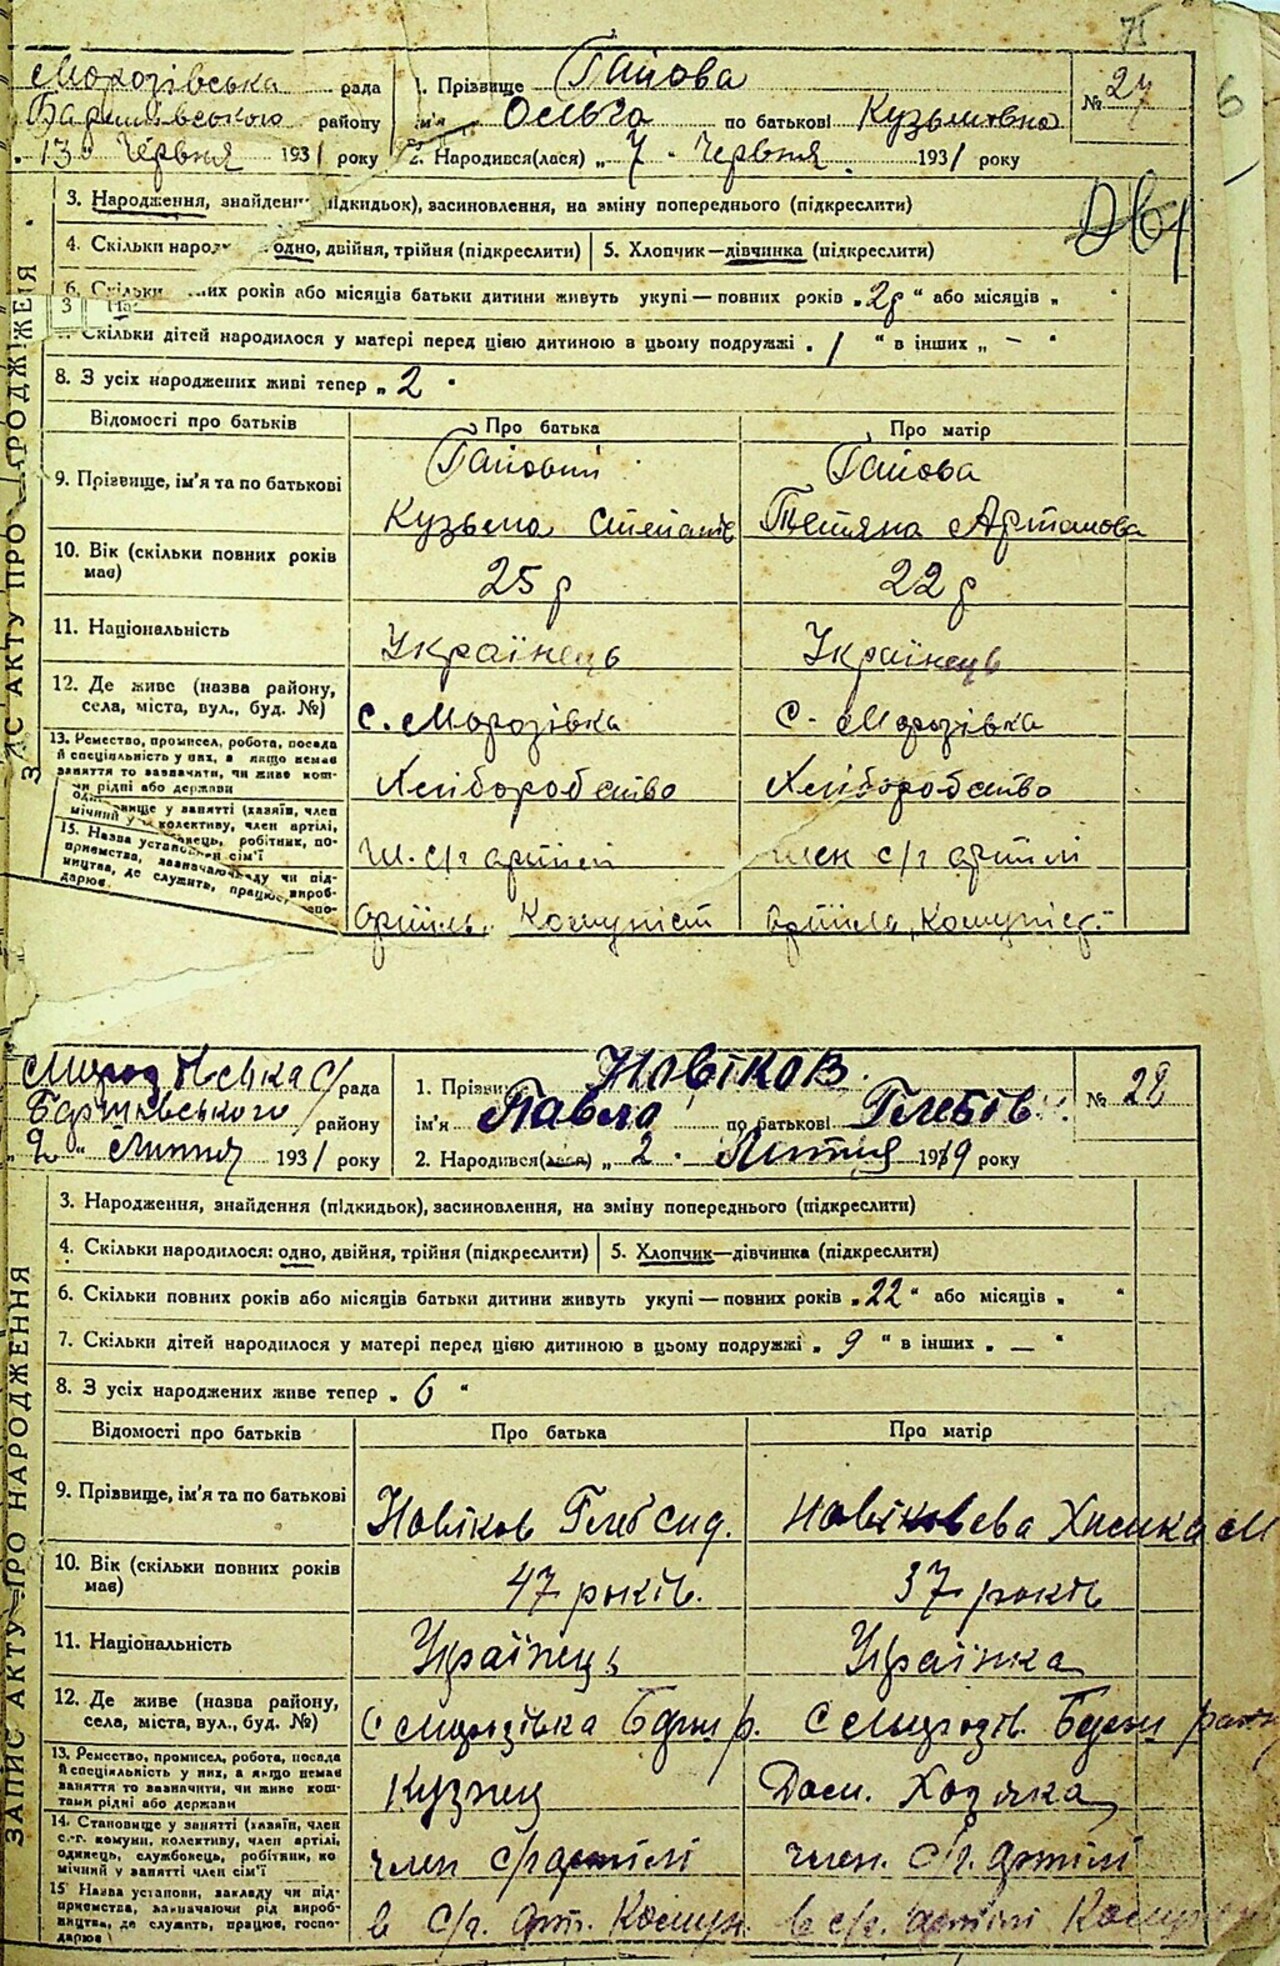 75
Морозівська рада
Баришівського району
"13" Червня 1931 року
1. Прізвище Гайова
ім'я Ольга по батькові Кузьмовна
2. Народився(лася) „7" Червня 1931 року
№ 27
6
3. Народження, знайдення (підкидьок), засиновлення, на зміну попереднього (підкреслити)
4. Скільки народ одно, двійня, трійня (підкреслити) 5. Хлопчик—дівчинка (підкреслити)
6. Скільки них років або місяців батьки дитини живуть укупі — повних років „2 р" або місяців „ "
3 На
Скільки дітей народилося у матері перед цією дитиною в цьому подружжі „1" в інших „ – "
8. З усіх народжених живі тепер „2"
Відомості про батьків Про батька Про матір
9. Прізвище, ім'я та по батькові Гайовий Гайова
Кузьма Степанів Тетяна Артамова
10. Вік (скільки повних років має) 25 р 22 р
11. Національність Українець Українець
12. Де живе (назва району, села, міста, вул., буд. №) с. Морозівка с. Морозівка
13. Ремество, промисел, робота, посада й спеціальність у них, а якщо немає заняття то зазначити, чи живе кош- ти рідні або держави Хліборобство Хліборобство
вище у занятті (хазяїн, член колективу, член артілі, робітник, по- мічний у сім'ї чл. с/г артілі член с/г артілі
15. Назва установи ду чи під- приємства, зазначаючи вироб- ництва, де служить, працює, спо- дарює артіль Комуніст артіль „Комуніст"
ЗАПИС АКТУ ПРО НАРОДЖЕННЯ
Морозівська с/рада
Баришівського району
„2" Липня 1931 року
1. Прізвище Новіков
ім'я Павло по батькові Глебів
2. Народився(лася) „2" Лютня 1919 року
№ 28
3. Народження, знайдення (підкидьок), засиновлення, на зміну попереднього (підкреслити)
4. Скільки народилося: одно, двійня, трійня (підкреслити) 5. Хлопчик—дівчинка (підкреслити)
6. Скільки повних років або місяців батьки дитини живуть укупі — повних років „22" або місяців „ "
7. Скільки дітей народилося у матері перед цією дитиною в цьому подружжі „9" в інших „ — "
8. З усіх народжених живе тепер „6"
Відомості про батьків Про батька Про матір
9. Прізвище, ім'я та по батькові Новіков Глеб Сид. М
10. Вік (скільки повних років має) 47 років. 37 років
11. Національність Українець Українка
12. Де живе (назва району, села, міста, вул., буд. №) С Морозівка Бариш р. С Морозів. Бариш район
13. Ремество, промисел, робота, посада й спеціальність у них, а якщо немає заняття то зазначити, чи живе кош- тами рідні або держави Кузнец Дом. Хозяйка
14. Становище у занятті (хазяїн, член с.-г. комуни, колективу, член артілі, одинець, службовець, робітник, по мічний у занятті член сім'ї член с/г артілі член. с/г. артілі
15 Назва установи, закладу чи під- приємства, зазначаючи рід вироб- ництва, де служить, працює, госпо- дарює в с/г. арт. Комун. в с/г. артілі Комун
ЗАПИС АКТУ ПРО НАРОДЖЕННЯ